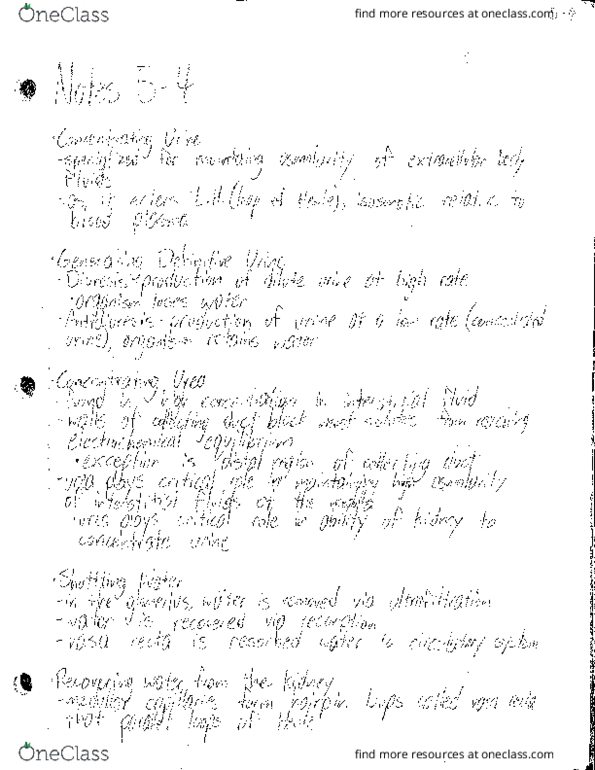 OneClass
find more resources at oneclass.com
Notes 5-4
·Concentrating Urine
-specialized for maintaining osmolarity of extracellular body
fluids
-as it enters L.H (loop of Henle), isosmotic relative to
blood plasma
·Generating Definitive Urine
-Diuresis-production of dilute urine at high rate
·organism loses water
-Antidiuresis-production of urine at a low rate (concentrated
urine), organism retains water
·Concentrating Urea
-found in high concentration in interstitial fluid
-walls of collecting duct block most solutes from reaching
electrochemical equilibrium
·exception is distal region of collecting duct
-urea plays critical role in maintaining high osmolarity
of interstitial fluids of the medulla
·urea plays critical role in ability of kidney to
concentrate urine
·Shuttling Water
-in the glomerulus, water is removed via ultrafiltration
-water is recovered via resorption
-vasa recta is resorbed water to circulatory system
·Recovering water from the kidney
-medullar capillaries form hairpin loops called vasa recta
that parallel loops of Henle
OneClass
find more resources at oneclass.com